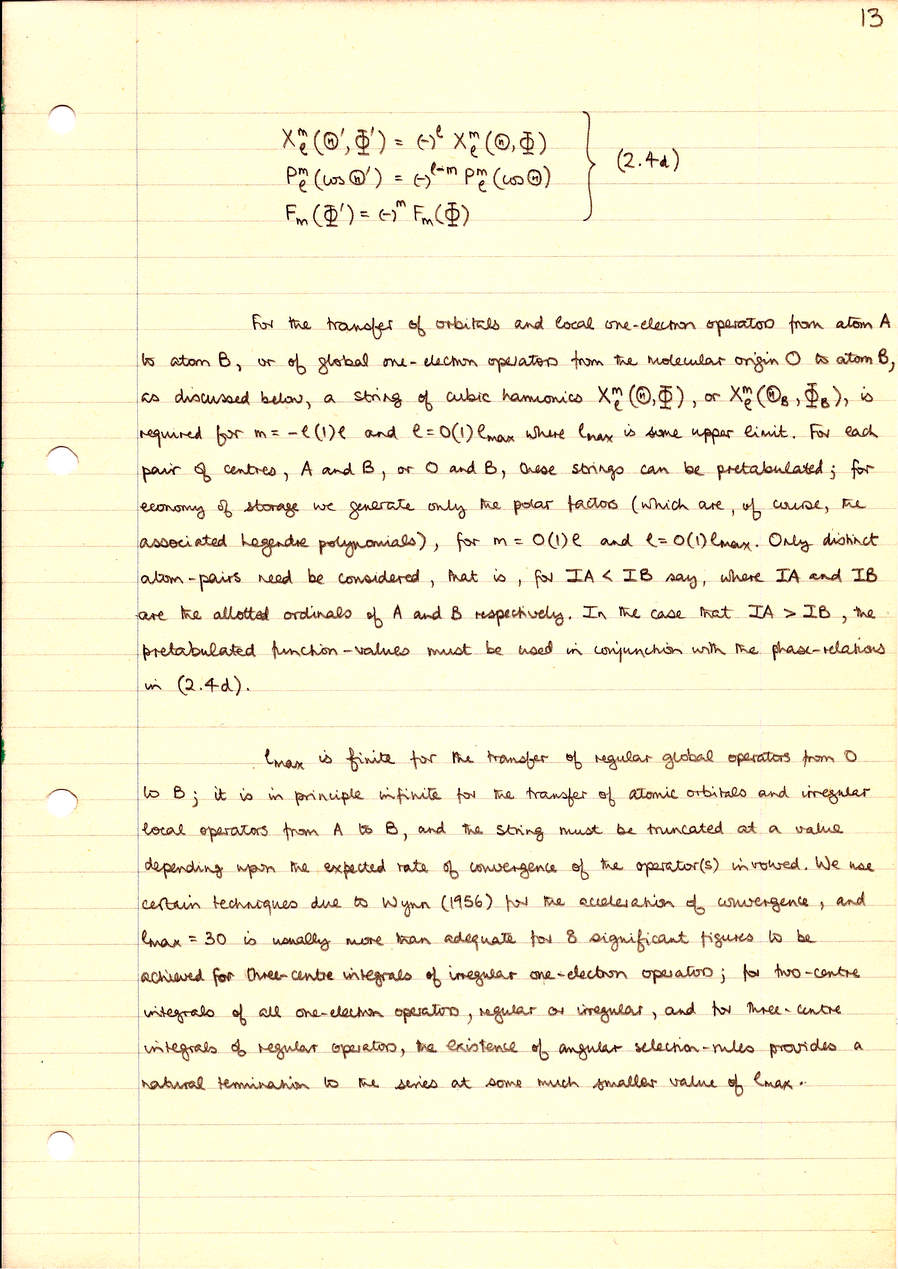 13
X_ℓ^m(Θ′,Φ′) = (-)^ℓ X_ℓ^m(Θ,Φ)
P_ℓ^m(cos Θ′) = (-)^{ℓ-m} P_ℓ^m(cos Θ) (2.4d)
F_m(Φ′) = (-)^m F_m(Φ)
For the transfer of orbitals and local one-electron operators from atom A
to atom B, or of global one-electron operators from the molecular origin O to atom B,
as discussed below, a string of cubic harmonics X_ℓ^m(Θ,Φ), or X_ℓ^m(Θ_B,Φ_B), is
required for m = -ℓ(1)ℓ and ℓ = 0(1)ℓmax where ℓmax is some upper limit. For each
pair of centres, A and B, or O and B, these strings can be pretabulated; for
economy of storage we generate only the polar factors (which are, of course, the
associated Legendre polynomials), for m = 0(1)ℓ and ℓ = 0(1)ℓmax. Only distinct
atom-pairs need be considered, that is, for IA < IB say, where IA and IB
are the allotted ordinals of A and B respectively. In the case that IA > IB, the
pretabulated function-values must be used in conjunction with the phase-relations
in (2.4d).
ℓmax is finite for the transfer of regular global operators from O
to B; it is in principle infinite for the transfer of atomic orbitals and irregular
local operators from A to B, and the string must be truncated at a value
depending upon the expected rate of convergence of the operator(s) involved. We use
certain techniques due to Wynn (1956) for the acceleration of convergence, and
ℓmax = 30 is usually more than adequate for 8 significant figures to be
achieved for three-centre integrals of irregular one-electron operators; for two-centre
integrals of all one-electron operators, regular or irregular, and for three-centre
integrals of regular operators, the existence of angular selection-rules provides a
natural termination to the series at some much smaller value of ℓmax.